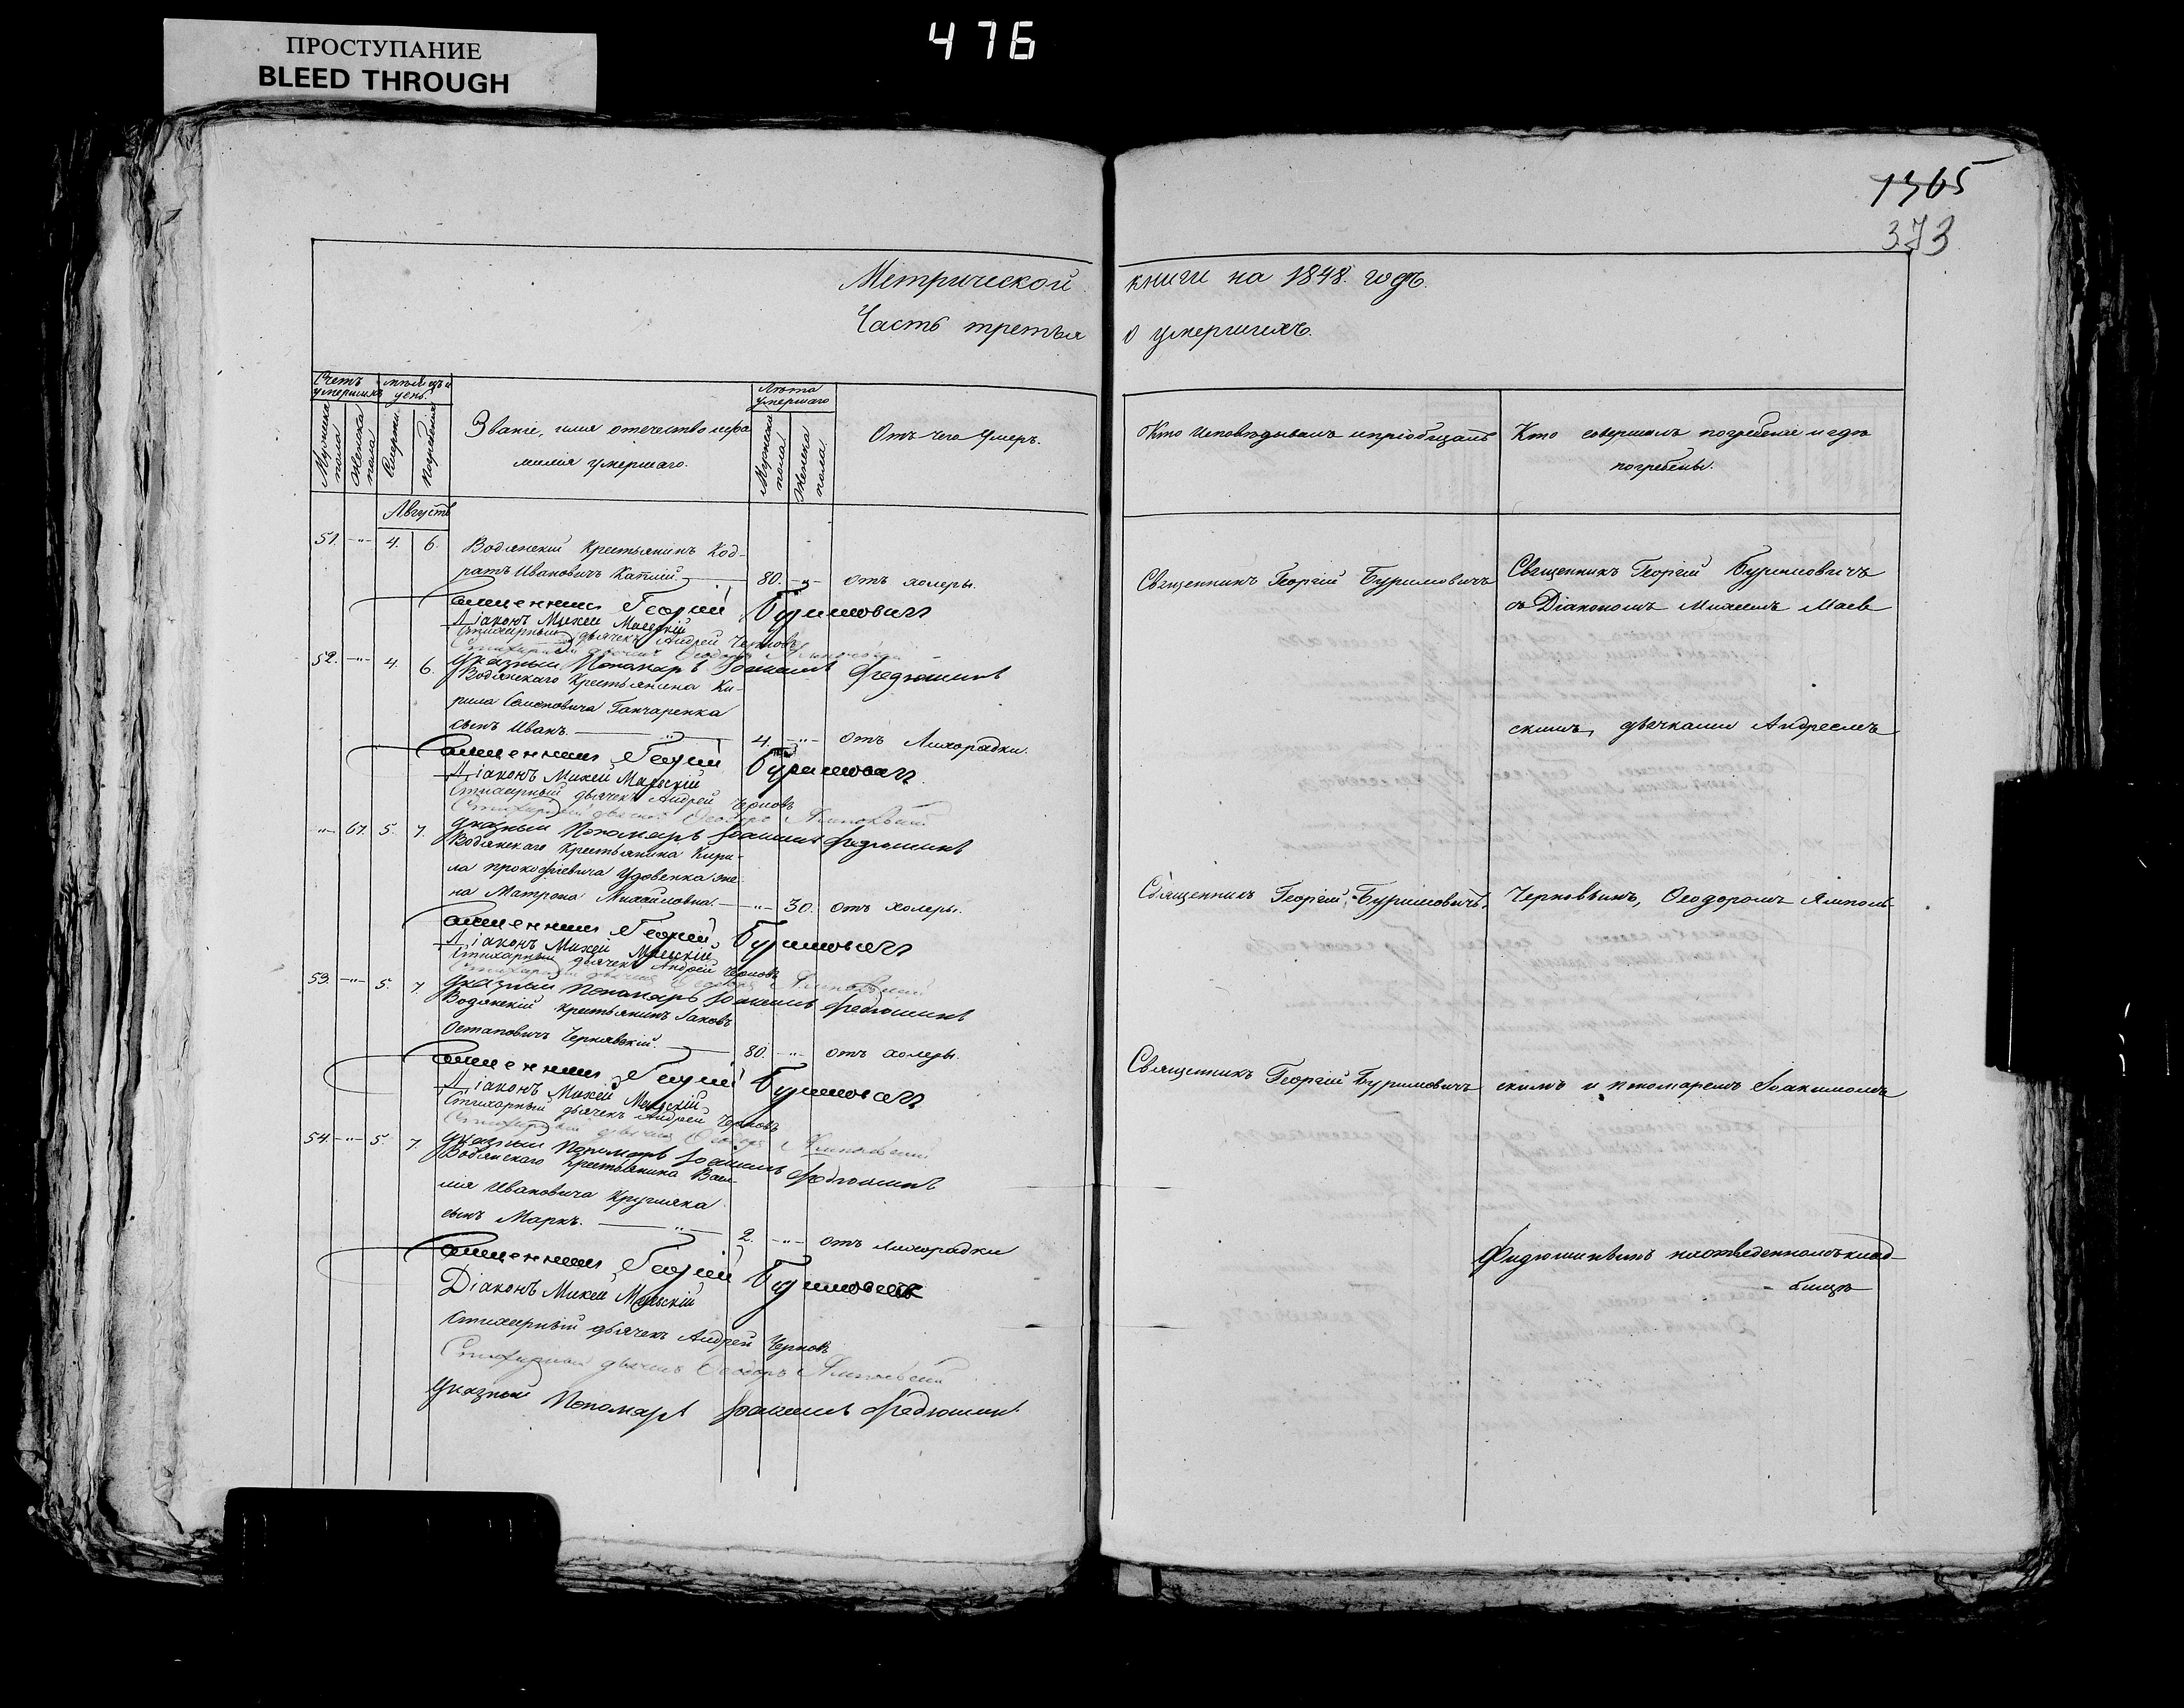 ПРОСТУПАНИЕ
BLEED THROUGH
476
1365
373
Метрической книги на 1848. годъ.
Часть третья о умершихъ.
Счетъ умершихъ
Мужеска пола
Женска пола
мѣсяцъ и день.
Смерти.
Погребенія
Званіе, имя отечество и фамилія умершаго.
Лѣта умершаго
Мужеска пола.
Женска пола.
Отъ чего умеръ.
Кто исповѣдывалъ и пріобщалъ
Кто совершалъ погребеніе и гдѣ погребены.
Августъ
51. -"- 4. 6. Водянскій Крестьянинъ Код-
ратъ Ивановичъ Каплій. 80. -"- отъ холеры.
Священникъ Георгій Буримовичъ
Діаконъ Михей Маевскій
Стихарный дьячекъ Андрей Черновъ
Стихарный дьячекъ Ѳеодоръ Ямпольскій
Указный Пономарь Іоакимъ Федюшинъ
52. -"- 4. 6. Водянскаго Крестьянина Ки-
рила Семеновича Ганчаренка
сынъ Иванъ. 4. -"- отъ Лихорадки.
Священникъ Георгій Буримовичъ
Діаконъ Михей Маевскій
Стихарный дьячекъ Андрей Черновъ
Стихарный дьячекъ Ѳеодоръ Ямпольскій
Указный Пономарь Іоакимъ Федюшинъ
-"- 67. 5. 7. Водянскаго Крестьянина Кири-
ла Прокофіевича Удовенка же-
на Матрона Михайловна. -"- 30. отъ холеры.
Священникъ Георгій Буримовичъ
Діаконъ Михей Маевскій
Стихарный дьячекъ Андрей Черновъ
Стихарный дьячекъ Ѳеодоръ Ямпольскій
Указный Пономарь Іоакимъ Федюшинъ
53. -"- 5. 7. Водянскій Крестьянинъ Іаковъ
Остаповичъ Чернявскій. 80. -"- отъ холеры.
Священникъ Георгій Буримовичъ
Діаконъ Михей Маевскій
Стихарный дьячекъ Андрей Черновъ
Стихарный дьячекъ Ѳеодоръ Ямпольскій
Указный Пономарь Іоакимъ Федюшинъ
54. -"- 5. 7. Водянскаго Крестьянина Васи-
лія Ивановича Кругляка
сынъ Маркъ. -"- 2. -"- отъ лихорадки
Священникъ Георгій Буримовичъ
Діаконъ Михей Маевскій
Стихарный дьячекъ Андрей Черновъ
Стихарный дьячекъ Ѳеодоръ Ямпольскій
Указный Пономарь Іоакимъ Федюшинъ
Священникъ Георгій Буримовичъ
Священникъ Георгій Буримовичъ.
Священникъ Георгій Буримовичъ
Священникъ Георгій Буримовичъ
съ Діакономъ Михеемъ Маев
скимъ, дьячками Андреемъ
Черновымъ, Ѳеодоромъ Ямполь
скимъ и пономаремъ Іоакимомъ
Фидюшинымъ на отведенномъ клад-
бищѣ